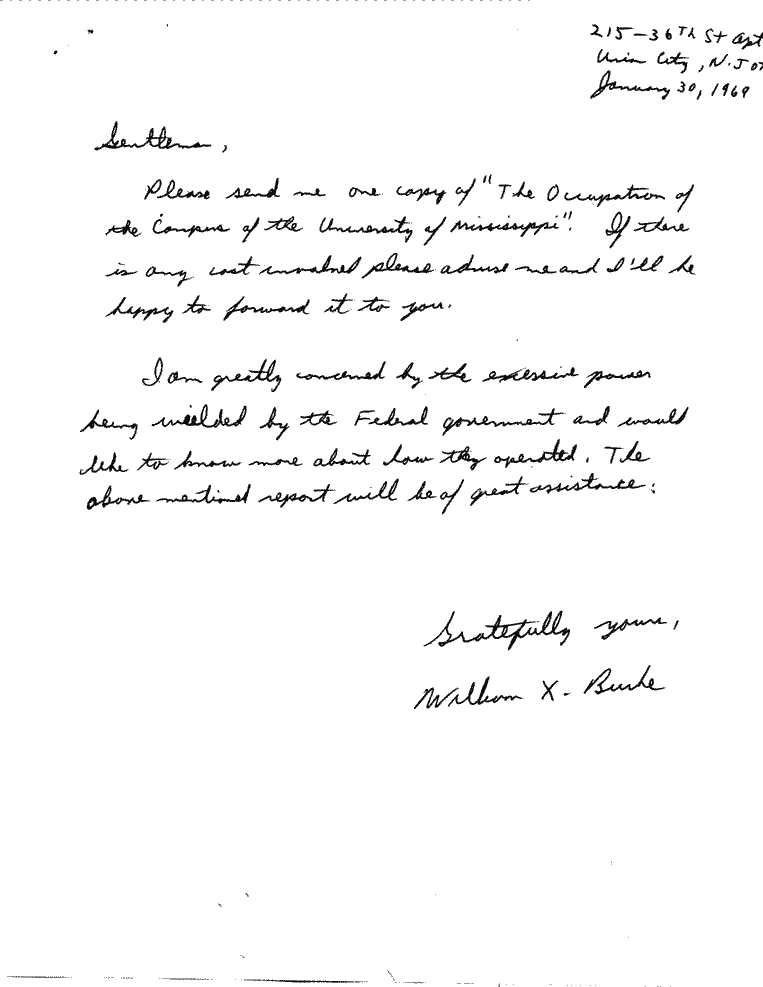 215-36Th St Apt
Union City, N.J 07
January 30, 1969
Gentleman,
Please send me one copy of "The Occupation of
the Campus of the University of Mississippi". If there
is any cost involved please advise me and I'll be
happy to forward it to you.
I am greatly concerned by the excessive power
being wielded by the Federal government and would
like to know more about how they operated. The
above mentioned report will be of great assistance.
Gratefully yours,
William X. Burke